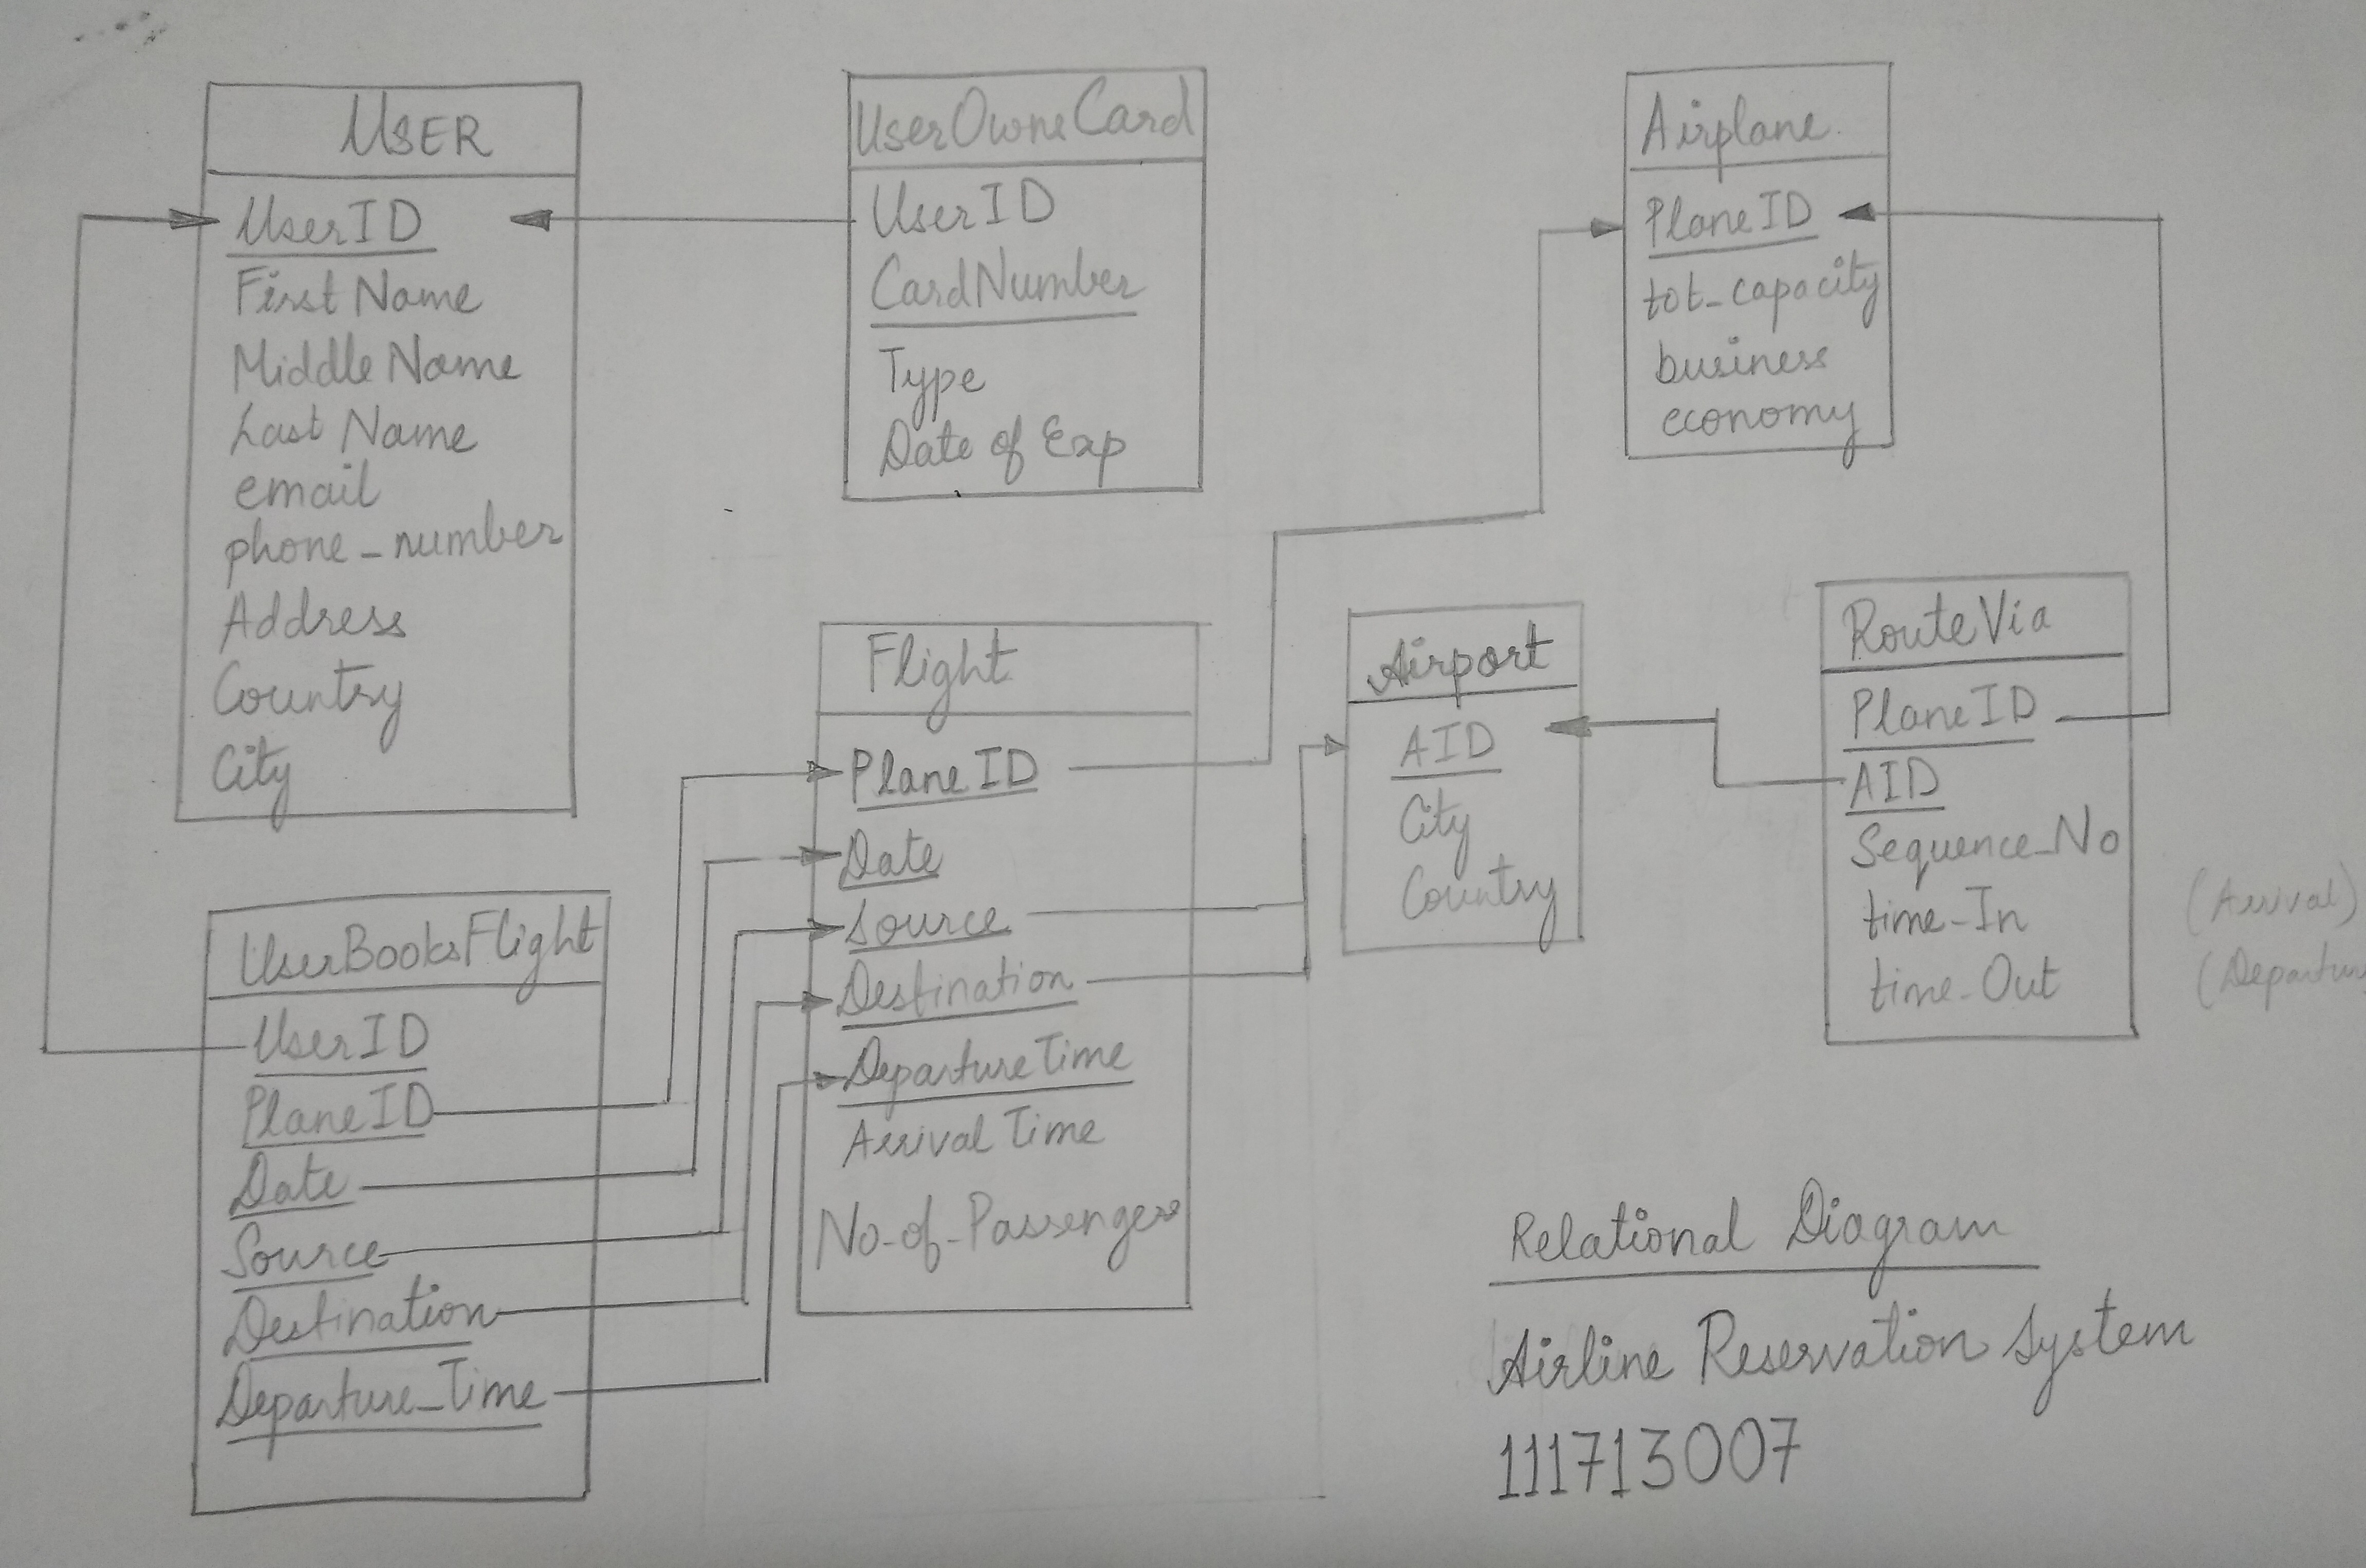 USER
UserID
First Name
Middle Name
Last Name
email
phone_number
Address
Country
City
UserOwnsCard
UserID
CardNumber
Type
Date of Exp
Airplane
PlaneID
tot_capacity
business
economy
Flight
PlaneID
Date
Source
Destination
DepartureTime
Arrival Time
No_of_Passengers
Airport
AID
City
Country
RouteVia
PlaneID
AID
Sequence_No
time_In (Arrival)
time_Out (Departure
UserBooksFlight
UserID
PlaneID
Date
Source
Destination
Departure_Time
Relational Diagram
Airline Reservation System
111713007